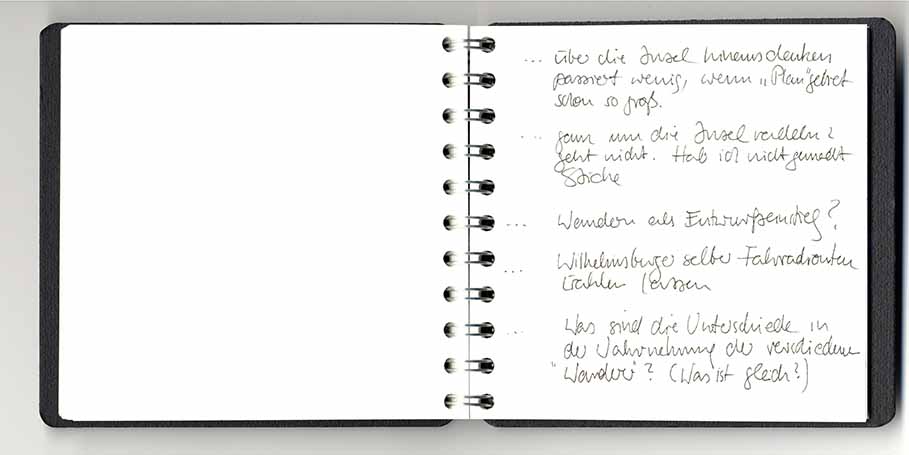 ... über die Insel hinausdenken
passiert wenig, wenn „Plan"gebiet
schon so groß.
... ganz um die Insel radeln?
geht nicht. Hab ich nicht gemacht
... Wandern als Entwurfseinstieg?
... Wilhelmsburger selber Fahrradrouten
lassen
... Was sind die Unterschiede in
der Wahrnehmung der verschiedene
"Wanderer"? (Was ist gleich?)